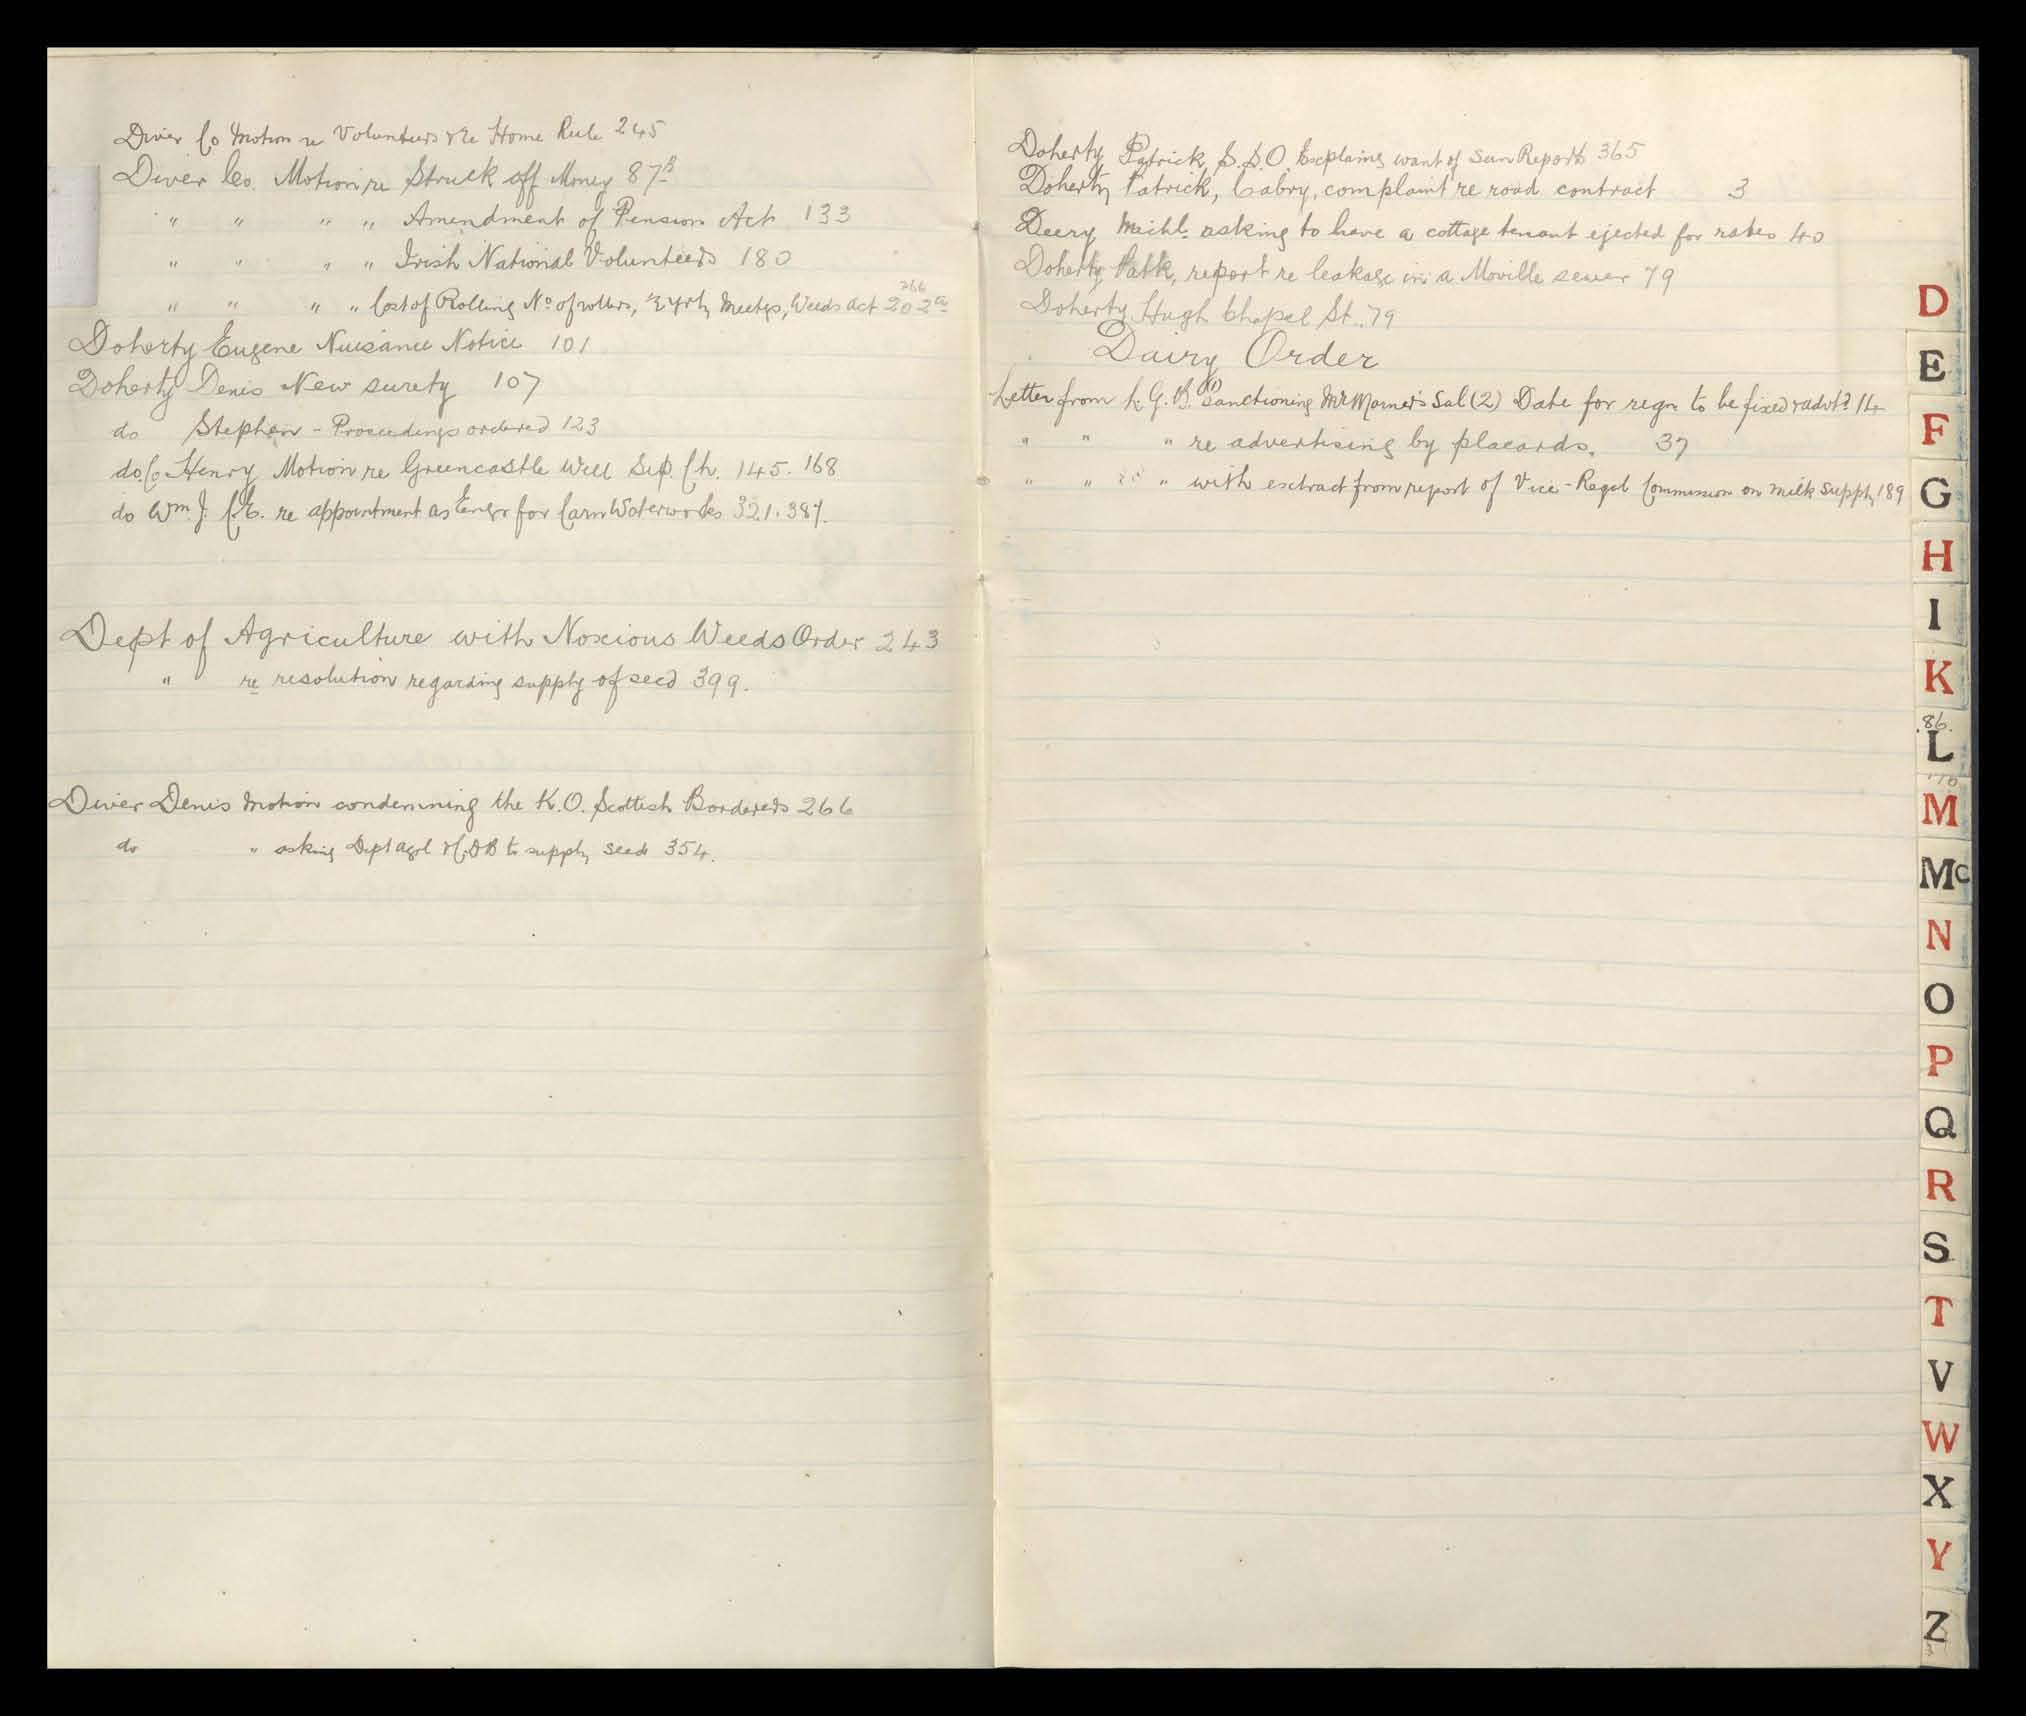 Diver Co Motion re Volunteers & re Home Rule 245
Diver Co. Motion re Struck off Money 87
" " " " Amendment of Pension Act 133
" " " " Irish National Volunteers 180
266
" " " " Cost of Rolling No of rollers, ¼ yrly Meetgs, Weeds Act 202
Doherty Eugene Nuisance Notice 101
Doherty Denis New surety 107
do Stephen - Proceedings ordered 123
do. Co Henry Motion re Greencastle Well Sep. Ch. 145. 168
do Wm. J. C.E. re appointment as Engr for Carn Waterworks 321. 387.
Dept of Agriculture with Noxious Weeds Order 243
" re resolution regarding supply of seed 399.
Diver Denis motion condemning the K.O. Scottish Borderers 266
do " asking Dept Agrl & C.D.B to supply seeds 354.
Doherty Patrick, S.S.O. Explains want of Sun Reports 365
Doherty Patrick, Cabry, complaint re road contract 3
Deery Michl. asking to have a cottage tenant ejected for rates 40
Doherty Patk, report re leakage in a Moville sewer 79
Doherty Hugh Chapel St. 79
Dairy Order
Letter from L.G.B. (1) Sanctioning Mr Sal (2) Date for regn to be fixed & advt
" " " re advertising by placards. 37
" " " with extract from report of Vice-Regal Commission on milk supply 189
D
E
F
G
H
I
K
86.
L
M
Mc
N
O
P
Q
R
S
T
V
W
X
Y
Z